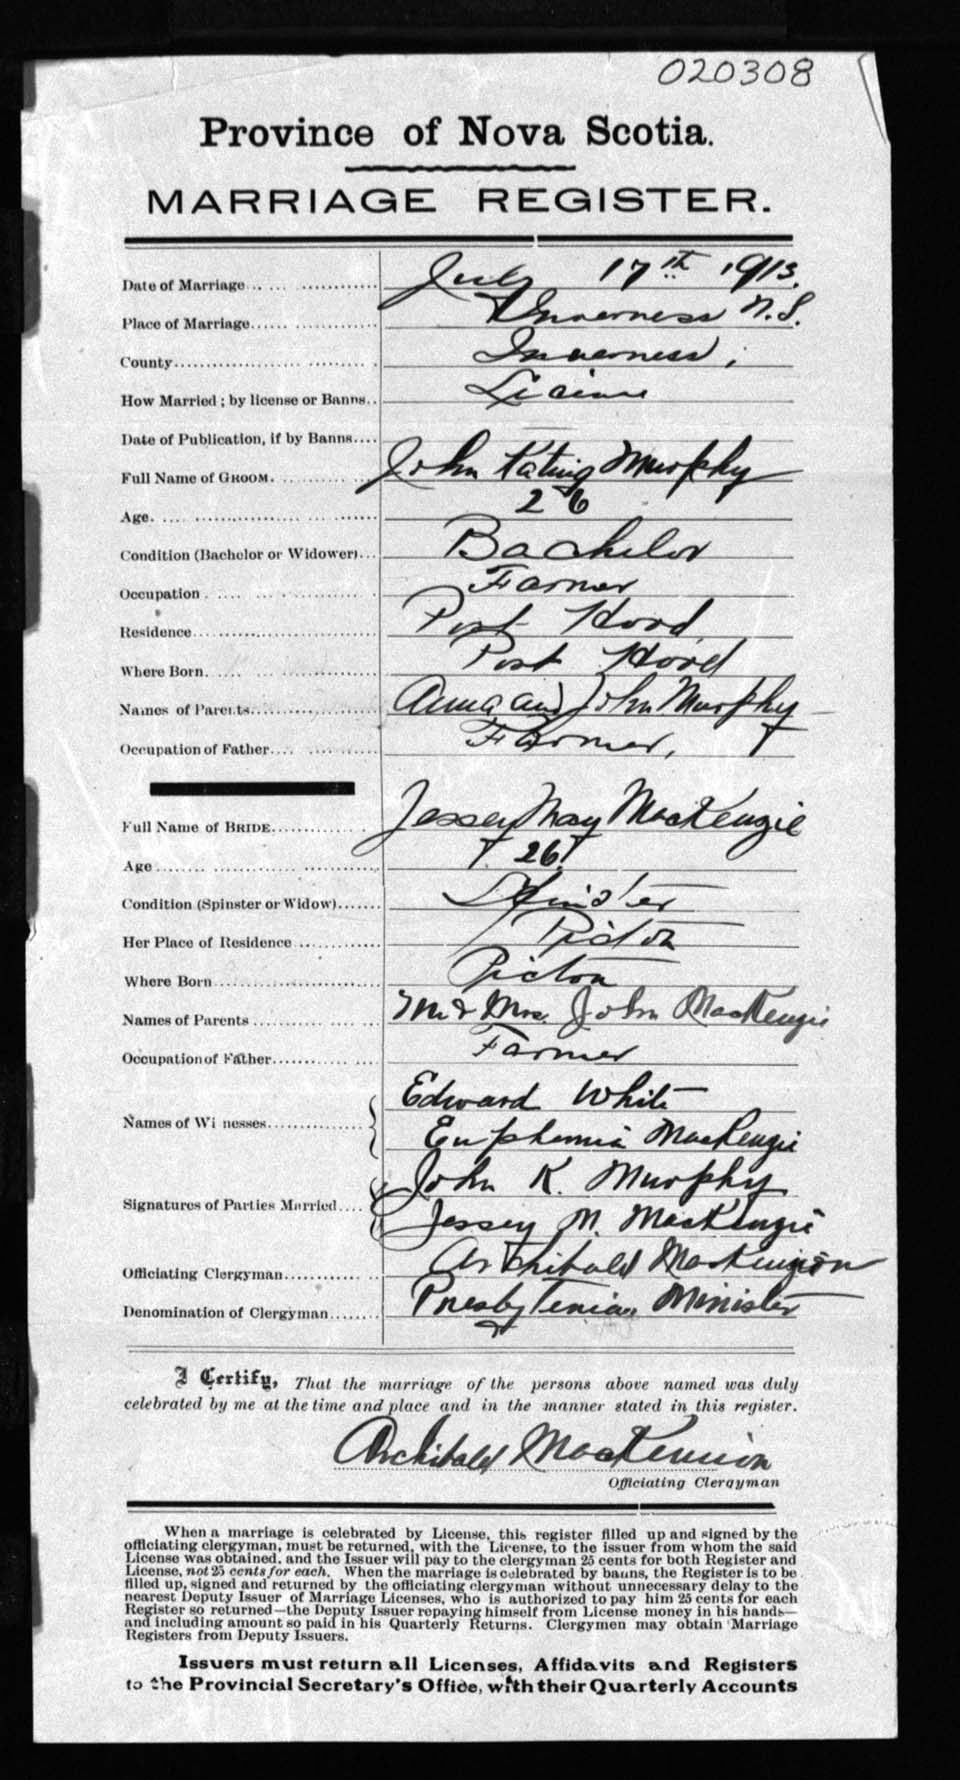 020308
Province of Nova Scotia.
MARRIAGE REGISTER.
Date of Marriage July 17th 1913.
Place of Marriage Inverness N.S.
County Inverness,
How Married; by license or Banns
Date of Publication, if by Banns
Full Name of GROOM. John Murphy
Age. 26
Condition (Bachelor or Widower) Bachelor
Occupation Farmer
Residence Port Hood
Where Born Port Hood
Names of Parents and John Murphy
Occupation of Father Farmer,
Full Name of BRIDE Jessey May MacKenzie
Age 26
Condition (Spinster or Widow) Spinster
Her Place of Residence Picton
Where Born Picton
Names of Parents Mr & Mrs. John MacKenzie
Occupation of Father Farmer
Edward White
Names of Wi nesses
Euphemia MacKenzie
John K. Murphy
Signatures of Parties Married
Jessey M. MacKenzie
Officiating Clergyman Archibald
Denomination of Clergyman Presbyterian Minister
I Certify, That the marriage of the persons above named was duly
celebrated by me at the time and place and in the manner stated in this register.
Archibald MacKinnon
Officiating Clergyman
When a marriage is celebrated by License, this register filled up and signed by the
officiating clergyman, must be returned, with the License, to the issuer from whom the said
License was obtained, and the Issuer will pay to the clergyman 25 cents for both Register and
License, not 25 cents for each. When the marriage is celebrated by banns, the Register is to be
filled up, signed and returned by the officiating clergyman without unnecessary delay to the
nearest Deputy Issuer of Marriage Licenses, who is authorized to pay him 25 cents for each
Register so returned—the Deputy Issuer repaying himself from License money in his hands—
and including amount so paid in his Quarterly Returns. Clergymen may obtain Marriage
Registers from Deputy Issuers.
Issuers must return all Licenses, Affidavits and Registers
to the Provincial Secretary's Office, with their Quarterly Accounts